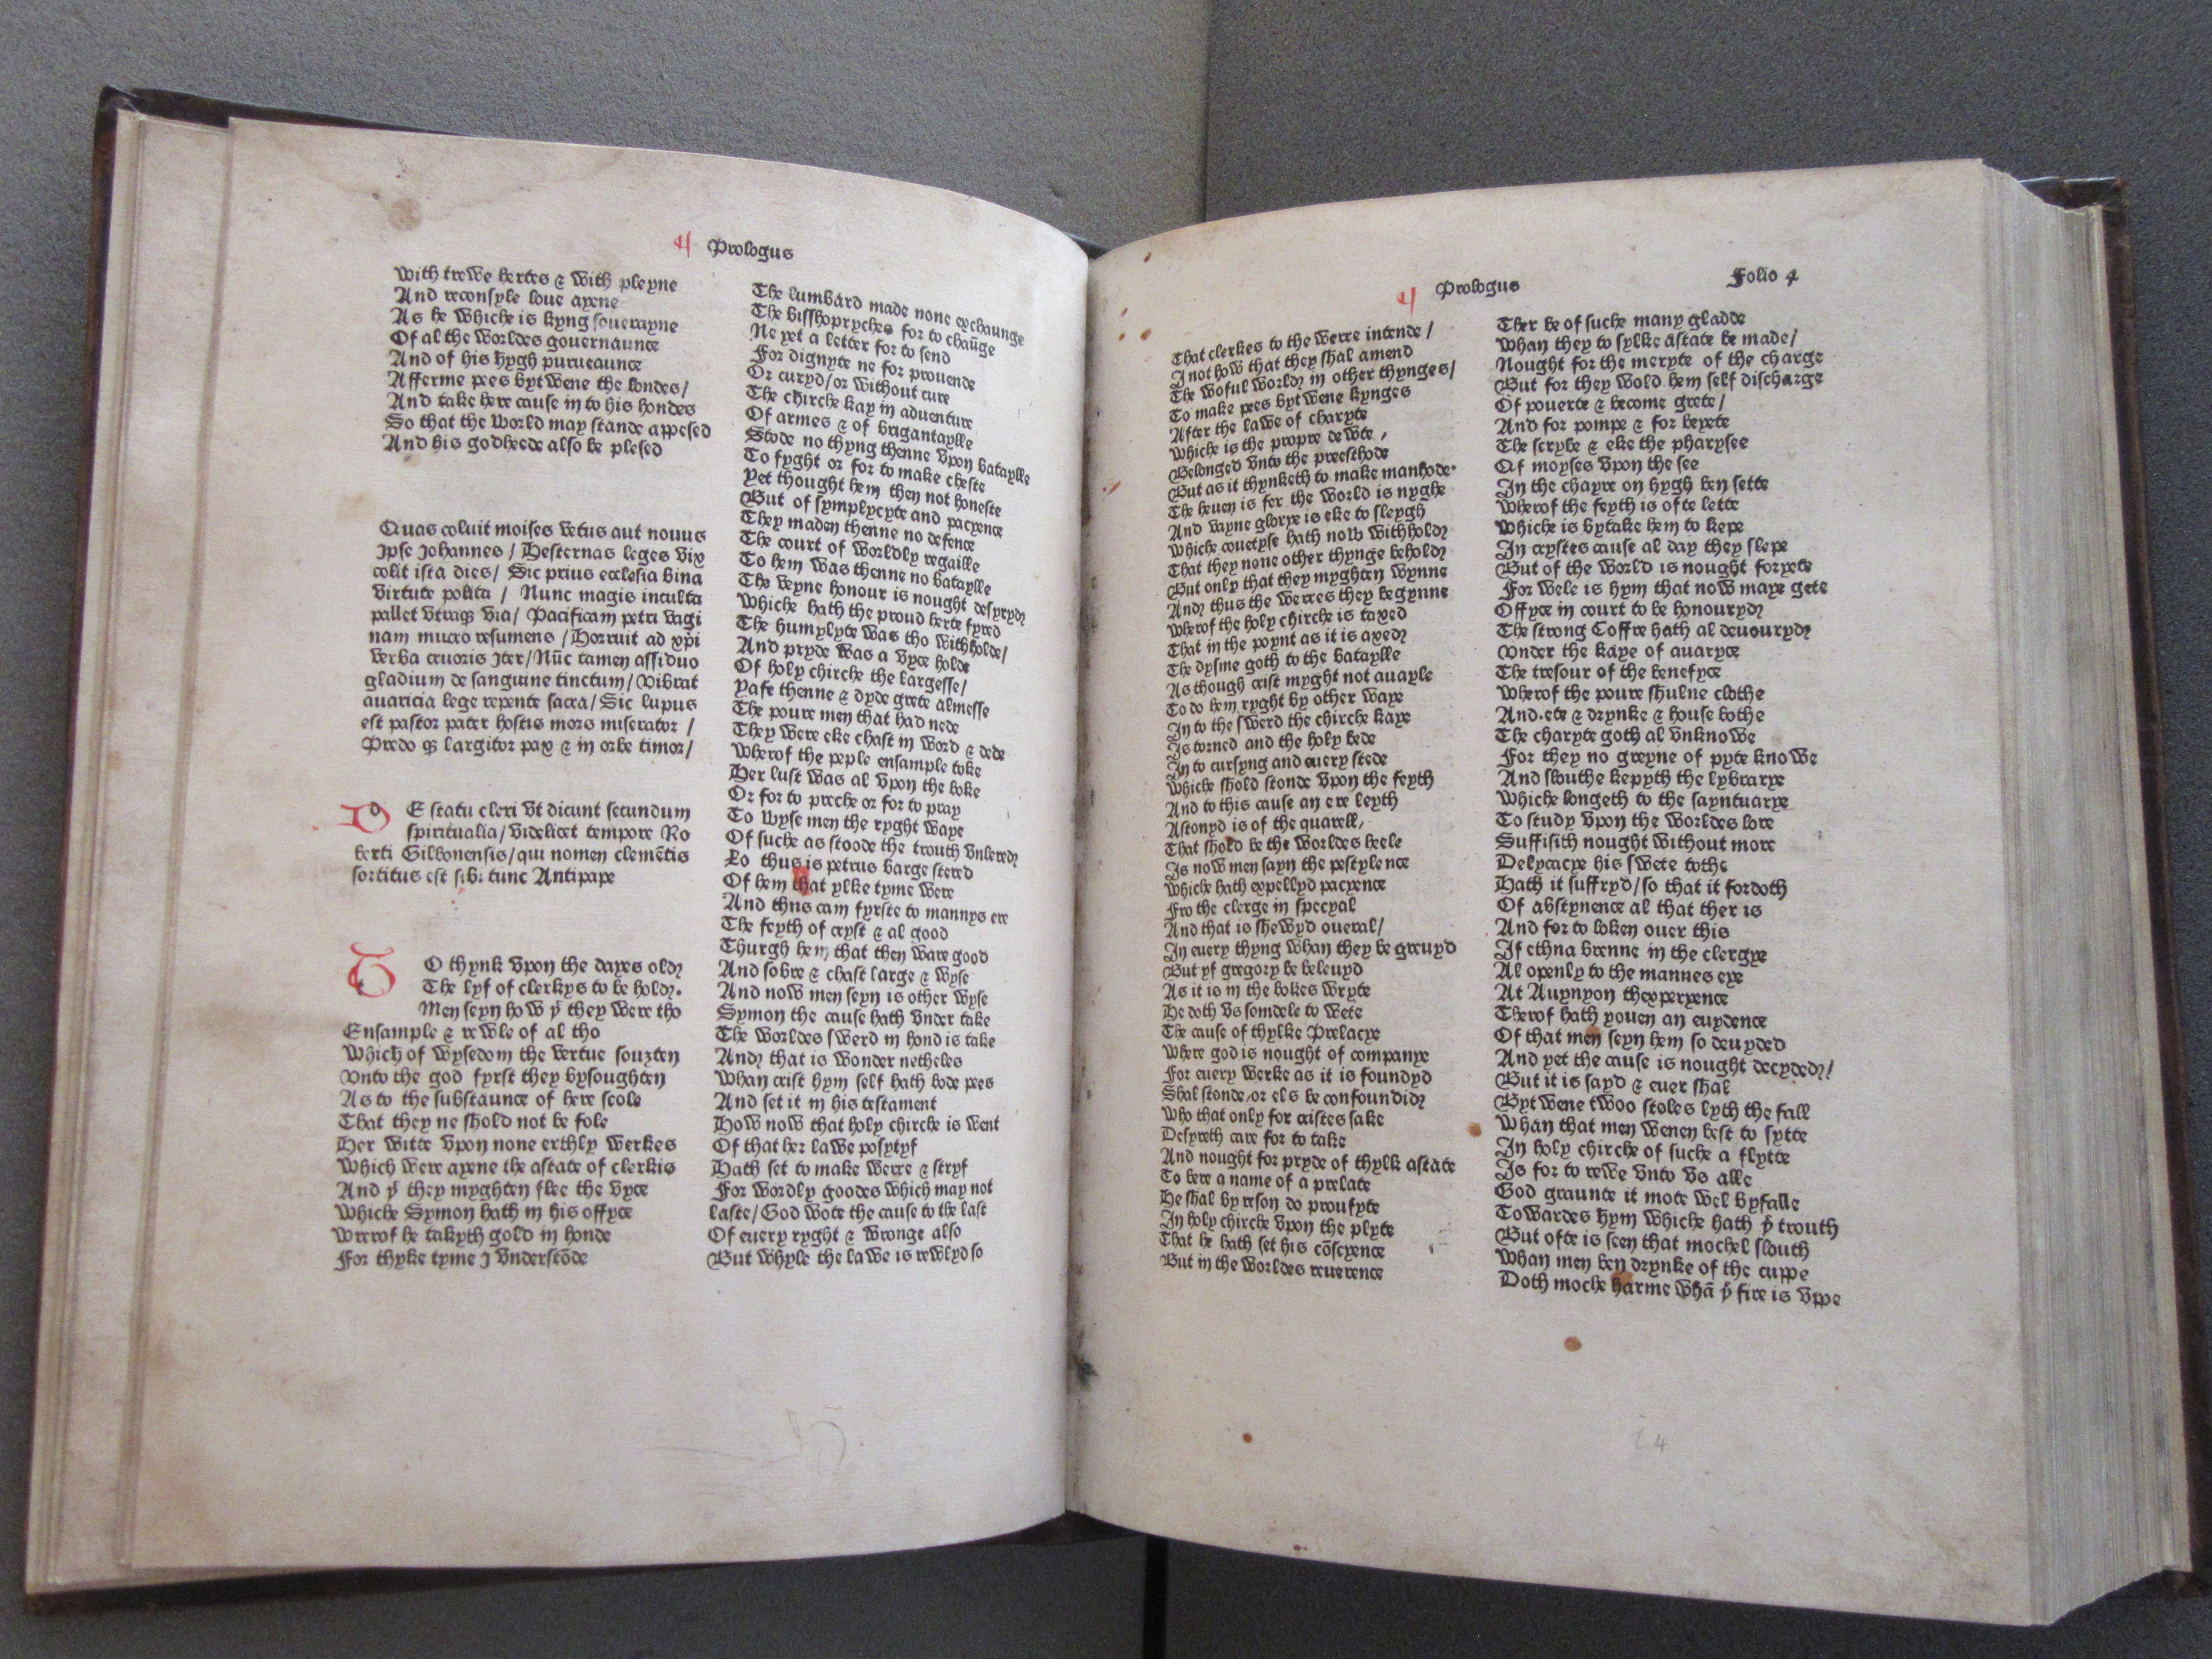 Prologus
With trewe hertes & with pleyne
And reconsyle loue ayene
As he whiche is kyng souerayne
Of al the worldes gouernaunce
And of his hygh purueaunce
Afferme pees bytwene the londes/
And take here cause in to his hondes
So that the world may stande appesed
And his godheede also be plesed
Quas coluit moises vetus aut nouus
Ipse Johannes / Hesternas leges vix
colit ista dies/ Sic prius ecclesia bina
virtute polita / Nunc magis inculta
pallet vtraqꝫ via/ Pacificam petri vagi
nam mucro resumens /Horruit ad xp̄i
verba cruoris Iter/Nūc tamen assiduo
gladium de sanguine tinctum/ Vibrat
auaricia lege repente sacra/Sic lupus
est pastor pater hostis mors miserator /
Predo qꝫ largitor pax & in orbe timor/
DE statu cleri vt dicunt secundum
spiritualia/videlicet tempore Ro
berti Gilbonensis/qui nomen clemētis
sortitus est sibi tunc Antipape
TO thynk vpon the dayes old
The lyf of clerkys to be hold.
Men seyn how yͭ they were tho
Ensample & rewle of al tho
Which of wysedom the vertue souzten
Vnto the god fyrst they bysoughten
As to the substaunce of here scole
That they ne shold not be fole
Her witte vpon none erthly werkes
Which were ayene the astate of clerkis
And yͭ they myghten flee the vyce
Whiche Symon hath in his offyce
Wrerof he takyth gold in honde
For thyke tyme I vnderstōde
The lumbard made none exchaunge
The bisshopryches for to chaūge
Ne yet a letter for to send
For dignyte ne for prouende
Or curyd/or without cure
The chirche kay in aduenture
Of armes & of brigantaylle
Stode no thyng thenne vpon bataylle
To fyght or for to make cheste
Yet thought hem then not honeste
But of symplycyte and pacyence
They maden thenne no defence
The court of worldly regaille
To hem was thenne no bataylle
The veyne honour is nought desyryd
Whiche hath the proud herte fyred
The humylyte was tho withholde/
And pryde was a vyce holde
Of holy chirche the largesse/
Yafe thenne & dyde grete almesse
The poure men that had nede
They were eke chast in word & dede
Wherof the peple ensample toke
Her lust was al vpon the boke
Or for to preche or for to pray
To wyse men the ryght waye
Of suche as stoode the trouth vnlered
Lo thus is petrus barge stered
Of hem that ylke tyme were
And thus cam fyrste to mannys ere
The feyth of cryst & al good
Thurgh hem that then ware good
And sobre & chast large & wyse
And now men seyn is other wyse
Symon the cause hath vnder take
The worldes swerd in hond is take
And that is wonder netheles
Whan crist hym self hath bode pees
And set it in his testament
How now that holy chirche is went
Of that her lawe posytyf
Hath set to make werre & stryf
For wordly goodes which may not
laste/God wote the cause to the last
Of euery ryght & wronge also
But whyle the lawe is rewlyd so
Prologus
Folio 4
That clerkes to the werre intende /
I not how that they shal amend
The woful world in other thynges/
To make pees bytwene kynges
After the lawe of charyte
Whiche is the propre dewte ,
Belonged vnto the preesthode
But as it thynketh to make manhode.
The heuen is fer the world is nyghe
And vayne glorye is eke to sleygh
Whiche couetyse hath now withhold
That they none other thynge behold
But only that they myghten wynne
And thus the werres they begynne
Wherof the holy chirche is taxed
That in the poynt as it is axed
The dysme goth to the bataylle
As though crist myght not auayle
To do hem ryght by other waye
In to the swerd the chirche kaye
Is torned and the holy bede
In to cursyng and euery stede
Whiche shold stonde vpon the feyth
And to this cause an ere leyth
Astonyd is of the quarell,
That shold be the worldes heele
Is now men sayn the pestylence
Whiche hath expellyd pacyence
Fro the clerge in specyal
And that is shewyd oueral/
In euery thyng whan they be greuyd
But yf gregory be beleuyd
As it is in the bokes wryte
He doth vs somdele to wete
The cause of thylke Prelacye
Where god is nought of companye
For euery werke as it is foundyd
Shal stonde/or els be confoundid
Who that only for cristes sake
Desyreth cure for to take
And nought for pryde of thylk astate
To bere a name of a prelate
He shal by reson do proufyte
In holy chirche vpon the plyte
That he hath set his cōscyence
But in the worldes reuerence
Ther be of suche many gladde
Whan they to sylke astate be made/
Nought for the meryte of the charge
But for they wold hem self discharge
Of pouerte & become grete/
And for pompe & for beyete
The scrybe & eke the pharysee
Of moyses vpon the see
In the chayre on hygh ben sette
Wherof the feyth is ofte lette
Whiche is bytake hem to kepe
In crystes cause al day they slepe
But of the world is nought foryete
For wele is hym that now maye gete
Offyce in court to be honouryd
The strong Coffre hath al deuouryd
Vnder the kaye of auaryce
The tresour of the benefyce
Wherof the poure shulne clothe
And.ete & drynke & house bothe
The charyte goth al vnknowe
For they no greyne of pyte knowe
And slouthe kepyth the lybrarye
Whiche longeth to the sayntuarye
To study vpon the worldes lore
Suffisith nought without more
Delycacye his swete tothe
Hath it suffryd/so that it fordoth
Of abstynence al that ther is
And for to loken ouer this
If ethna brenne in the clergye
Al openly to the mannes eye
At Auynyon thexperyence
Therof hath youen an euydence
Of that men seyn hem so deuyded
And yet the cause is nought decyded/
But it is sayd & euer shal
Bytwene twoo stoles lyth the fall
Whan that men wenen best to sytte
In holy chirche of suche a slytte
Is for to rewe vnto vs alle
God graunte it mote wel byfalle
Towardes hym whiche hath yͤ trouth
But ofte is seen that mochel slouth
Whan men ben drynke of the cuppe
Doth moche harme whā yͤ fire is vppe